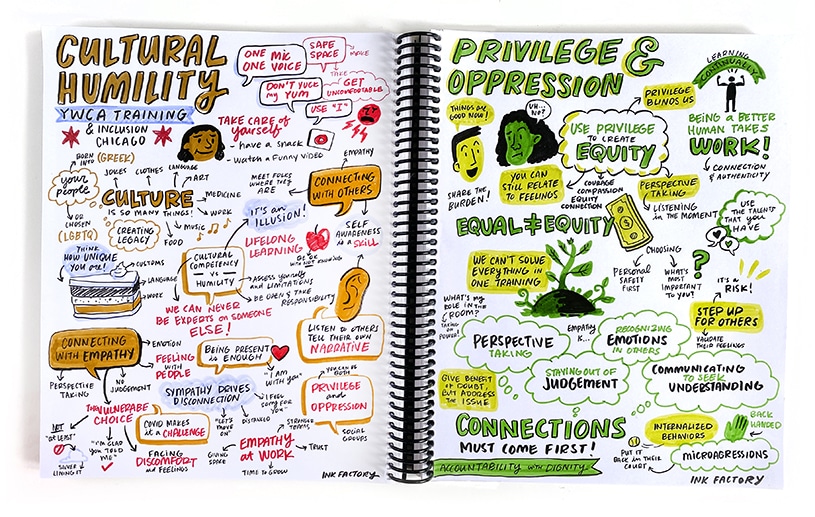 CULTURAL
HUMILITY
YWCA TRAINING
& INCLUSION
CHICAGO
ONE MIC
ONE VOICE
SAFE
SPACE
MAKE
TAKE
DON'T YUCK
my YUM
GET
UNCOMFORTABLE
USE "I"
TAKE CARE of
yourself
- have a snack
- watch a funny video
BORN
INTO
(GREEK)
your
people
OR
CHOSEN
(LGBTQ)
JOKES
CLOTHES
LANGUAGE
ART
CULTURE
IS SO MANY THINGS!
MEDICINE
WORK
MUSIC
FOOD
CREATING
LEGACY
MEET FOLKS
WHERE THEY
ARE
EMPATHY
CONNECTING
WITH OTHERS
IT'S an
ILLUSION!
SELF
AWARENESS
is a SKILL
LIFELONG
LEARNING
BE OK
WITH NOT KNOWING
THINK
HOW UNIQUE
YOU are!
CUSTOMS
LANGUAGE
WORK
CULTURAL
COMPETENCY
VS
HUMILITY
ASSESS yourself
and LIMITATIONS
BE OPEN & TAKE
RESPONSIBILITY
WE CAN NEVER
BE EXPERTS on SOMEONE
ELSE!
LISTEN TO OTHERS
TELL THEIR OWN
NARRATIVE
CONNECTING
WITH EMPATHY
EMOTION
FEELING
WITH
PEOPLE
PERSPECTIVE
TAKING
NO
JUDGEMENT
BEING PRESENT
is ENOUGH
"I AM
WITH YOU"
SYMPATHY DRIVES
DISCONNECTION
"LET'S
MOVE
ON"
DISTANCED
"I FEEL
SORRY FOR
YOU"
YOU CAN BE
BOTH
PRIVILEGE
and
OPPRESSION
SOCIAL
GROUPS
THE VULNERABLE
CHOICE
NOT
"AT LEAST"
SILVER
LINING IT
"I'M GLAD
YOU TOLD
ME"
COVID MAKES
it a CHALLENGE
FACING
DISCOMFORT
and FEELINGS
STRONGER
TEAMS
EMPATHY
AT WORK
TRUST
GIVING
SPACE
TIME TO GROW
INK FACTORY
PRIVILEGE &
OPPRESSION
LEARNING
CONTINUALLY
THINGS are
GOOD NOW!
UH...
NO?
PRIVILEGE
BLINDS US
USE PRIVILEGE
TO CREATE
EQUITY
BEING A BETTER
HUMAN TAKES
WORK!
CONNECTION
& AUTHENTICITY
SHARE THE
BURDEN!
YOU CAN
STILL RELATE
TO FEELINGS
COURAGE
COMPASSION
EQUITY
CONNECTION
PERSPECTIVE
TAKING
LISTENING
in the MOMENT
USE THE
TALENTS THAT
YOU HAVE
EQUAL ≠ EQUITY
WE CAN'T SOLVE
EVERYTHING IN
ONE TRAINING
CHOOSING
PERSONAL
SAFETY
FIRST
WHAT'S
MOST
IMPORTANT
TO YOU?
?
IT'S A
RISK!
STEP UP
FOR OTHERS
VALIDATE
THEIR FEELINGS
WHAT'S my
ROLE IN the
ROOM?
TAKING
on
POWER!
PERSPECTIVE
TAKING
EMPATHY
IS...
RECOGNIZING
EMOTIONS
IN OTHERS
STAYING OUT OF
JUDGEMENT
COMMUNICATING
TO SEEK
UNDERSTANDING
GIVE BENEFIT
of DOUBT,
BUT ADDRESS
the ISSUE
CONNECTIONS
MUST COME FIRST!
ACCOUNTABILITY with DIGNITY
INTERNALIZED
BEHAVIORS
BACK
HANDED
PUT IT
BACK IN THEIR
COURT
MICROAGRESSIONS
INK FACTORY